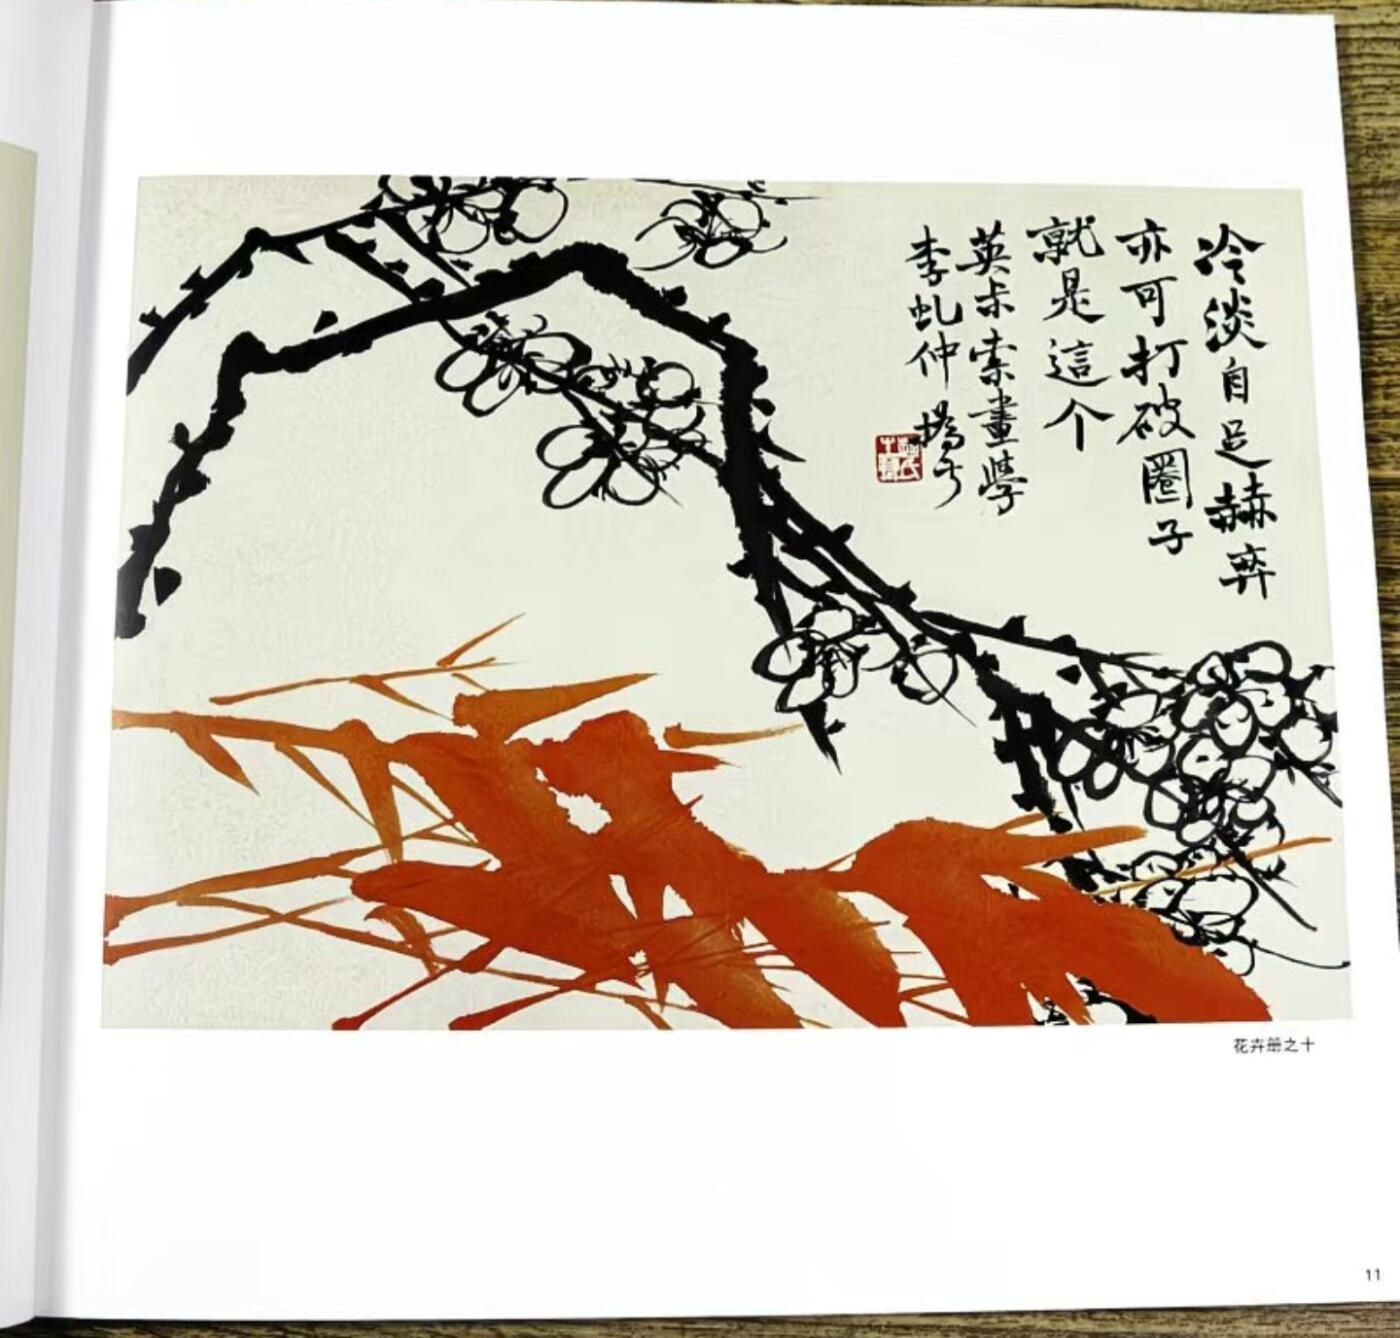 冷淡自足赫弈
亦可打破圈子
就是這个
英未索畫學
李虬仲 撝尗
花卉册之十
11